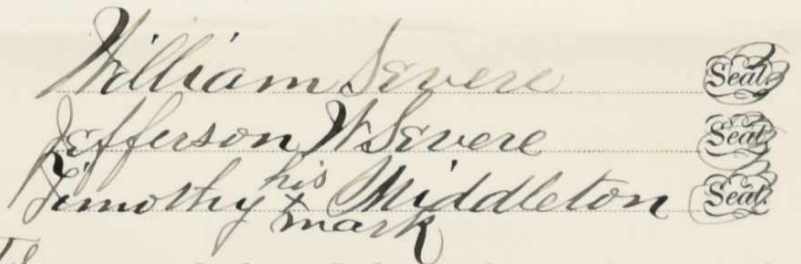 William Severe Seal.
Jefferson W Severe Seal.
Timothy his x mark Middleton Seal.